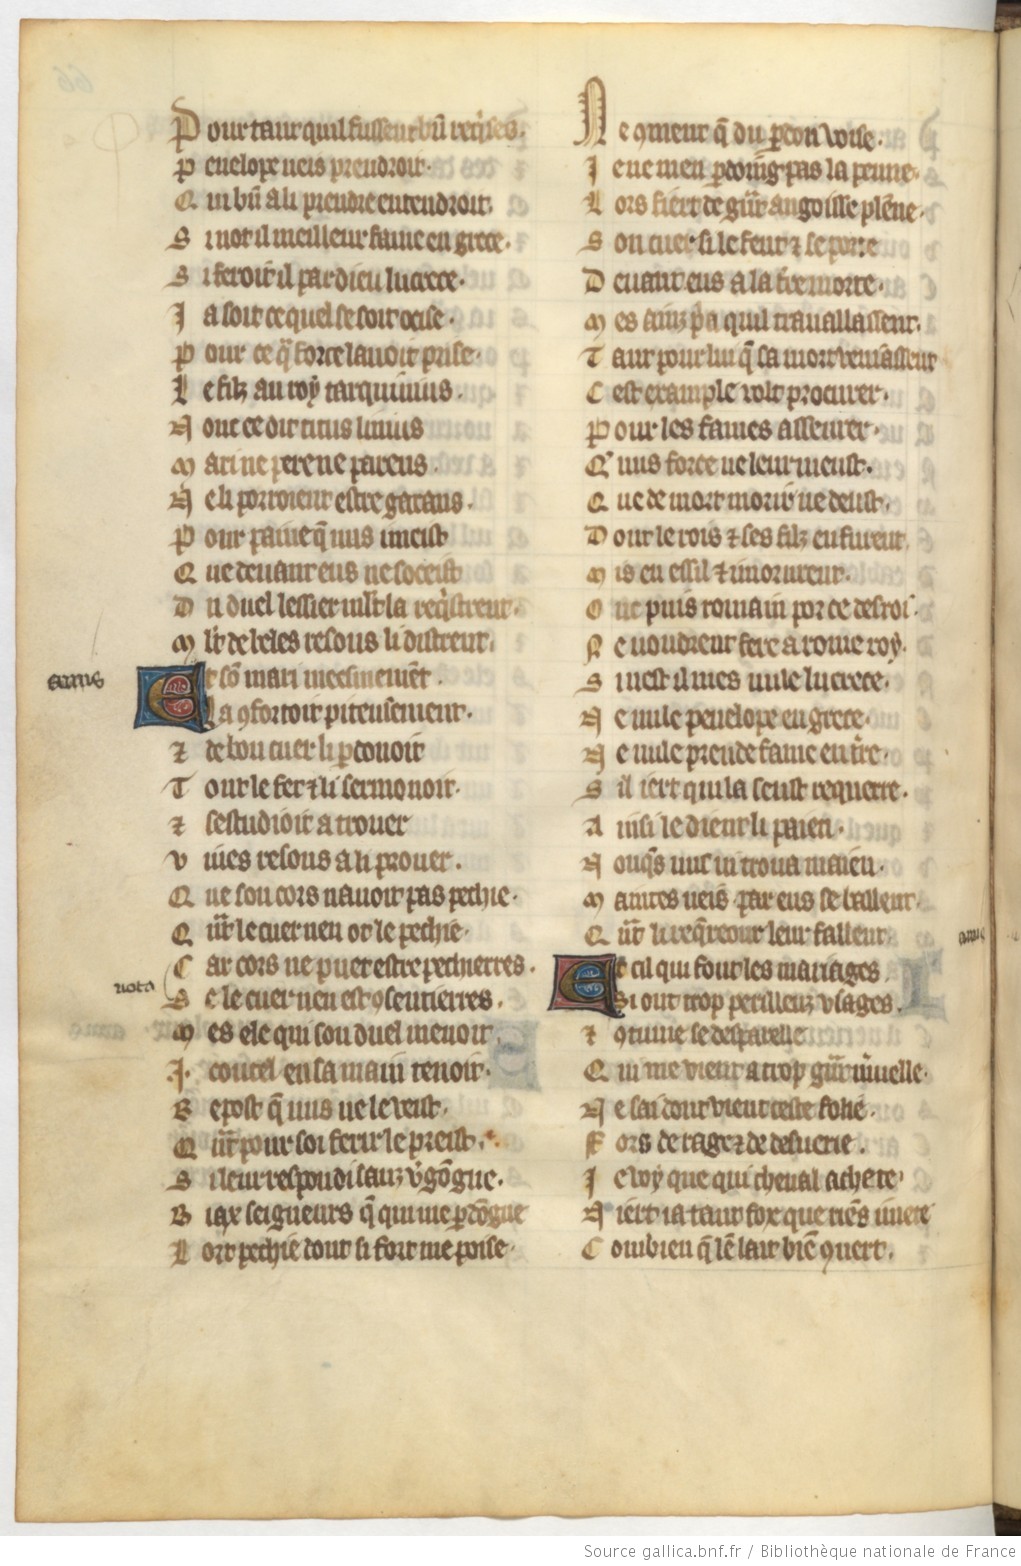 Pour tant quil fussent bn̄ req̄ises.
Penelope neis prendroit.
Qui bn̄ a li prendre entendroit.
Si not il meilleur fame en grece.
Si feroit il par dieu lucrece.
Ja soit ce quel se soit ocise.
Pour ce q̄ force lavoit prise.
Le filz au roy tarquinius.
Nonc ce dit titus livius
Mari ne pere ne parens.
Ne li porroient estre garans.
Pour paine q̄ nus i meist
Que devant eus ne soceist
Du duel lessier mlt la reqistrent.
Mlt de beles resons li distrent.
Et sō mari meesmement.
La ꝯfortoit piteusement.
⁊ de bon cuer li ꝑdonoit
Tout le fet ⁊ li sermonoit.
⁊ sestudioit a trouer
Vives resons a li prouer.
Que son cors navoit pas pechie.
Qn̄t le cuer nen ot le pechie.
Car cors ne puet estre pechierres.
nota
Se le cuer nen est ꝯsentierres.
Mes ele qui son duel menoit
.I. coutel en sa main tenoit.
Repost q̄ nus ne le veist.
Qn̄t pour soi ferir le preist.
Si leur respondi sanz v̄gōgne.
Biax seigneurs q̄ qui me ꝑdōgne
Lort pechie dont si fort me poise.
Ne ꝯment q̄ du ꝑdon voise.
Je ne men ꝑdoing pas la peine.
Lors fiert de gn̄t angoisse plēne.
Son cuer si le fent ⁊ se porte
Devant eus a la tr̄e morte.
Mes ainz pͥa quil travaillassent.
Tant pour lui q̄ sa mort venjassent
Cest example volt procurer.
Pour les fames asseurer.
Que nus force ne leur meust.
Que de mort morir ne deust.
Dont le rois ⁊ ses filz en furent
Mis en essil ⁊ i morurent.
Onc puis romain por ce desroi.
Ne voudrent fere a rome roy.
Si nest il mes nule lucrece.
Ne nule penelope en grece.
Ne nule preude fame en tr̄e.
Sil iert qui la seust requerre.
Ainsi le dient li paien.
Nonqs nus ni trova maien.
Maintes neis par eus se ballent
Qn̄t li req̄reour leur fallent.
Et cil qui font les mariages
Si ont trop perilleuz vsages.
Qui me vient a trop gn̄t mv̄elle.
Ne sai dont vient ceste folie.
Fors de rage ⁊ de desverie.
Je voy que qui cheval achete
Niert ia tant fox que riēs i mete
Combien q̄ lē lait biē ꝯvert.
Source gallica.bnf.fr / Bibliothèque nationale de France